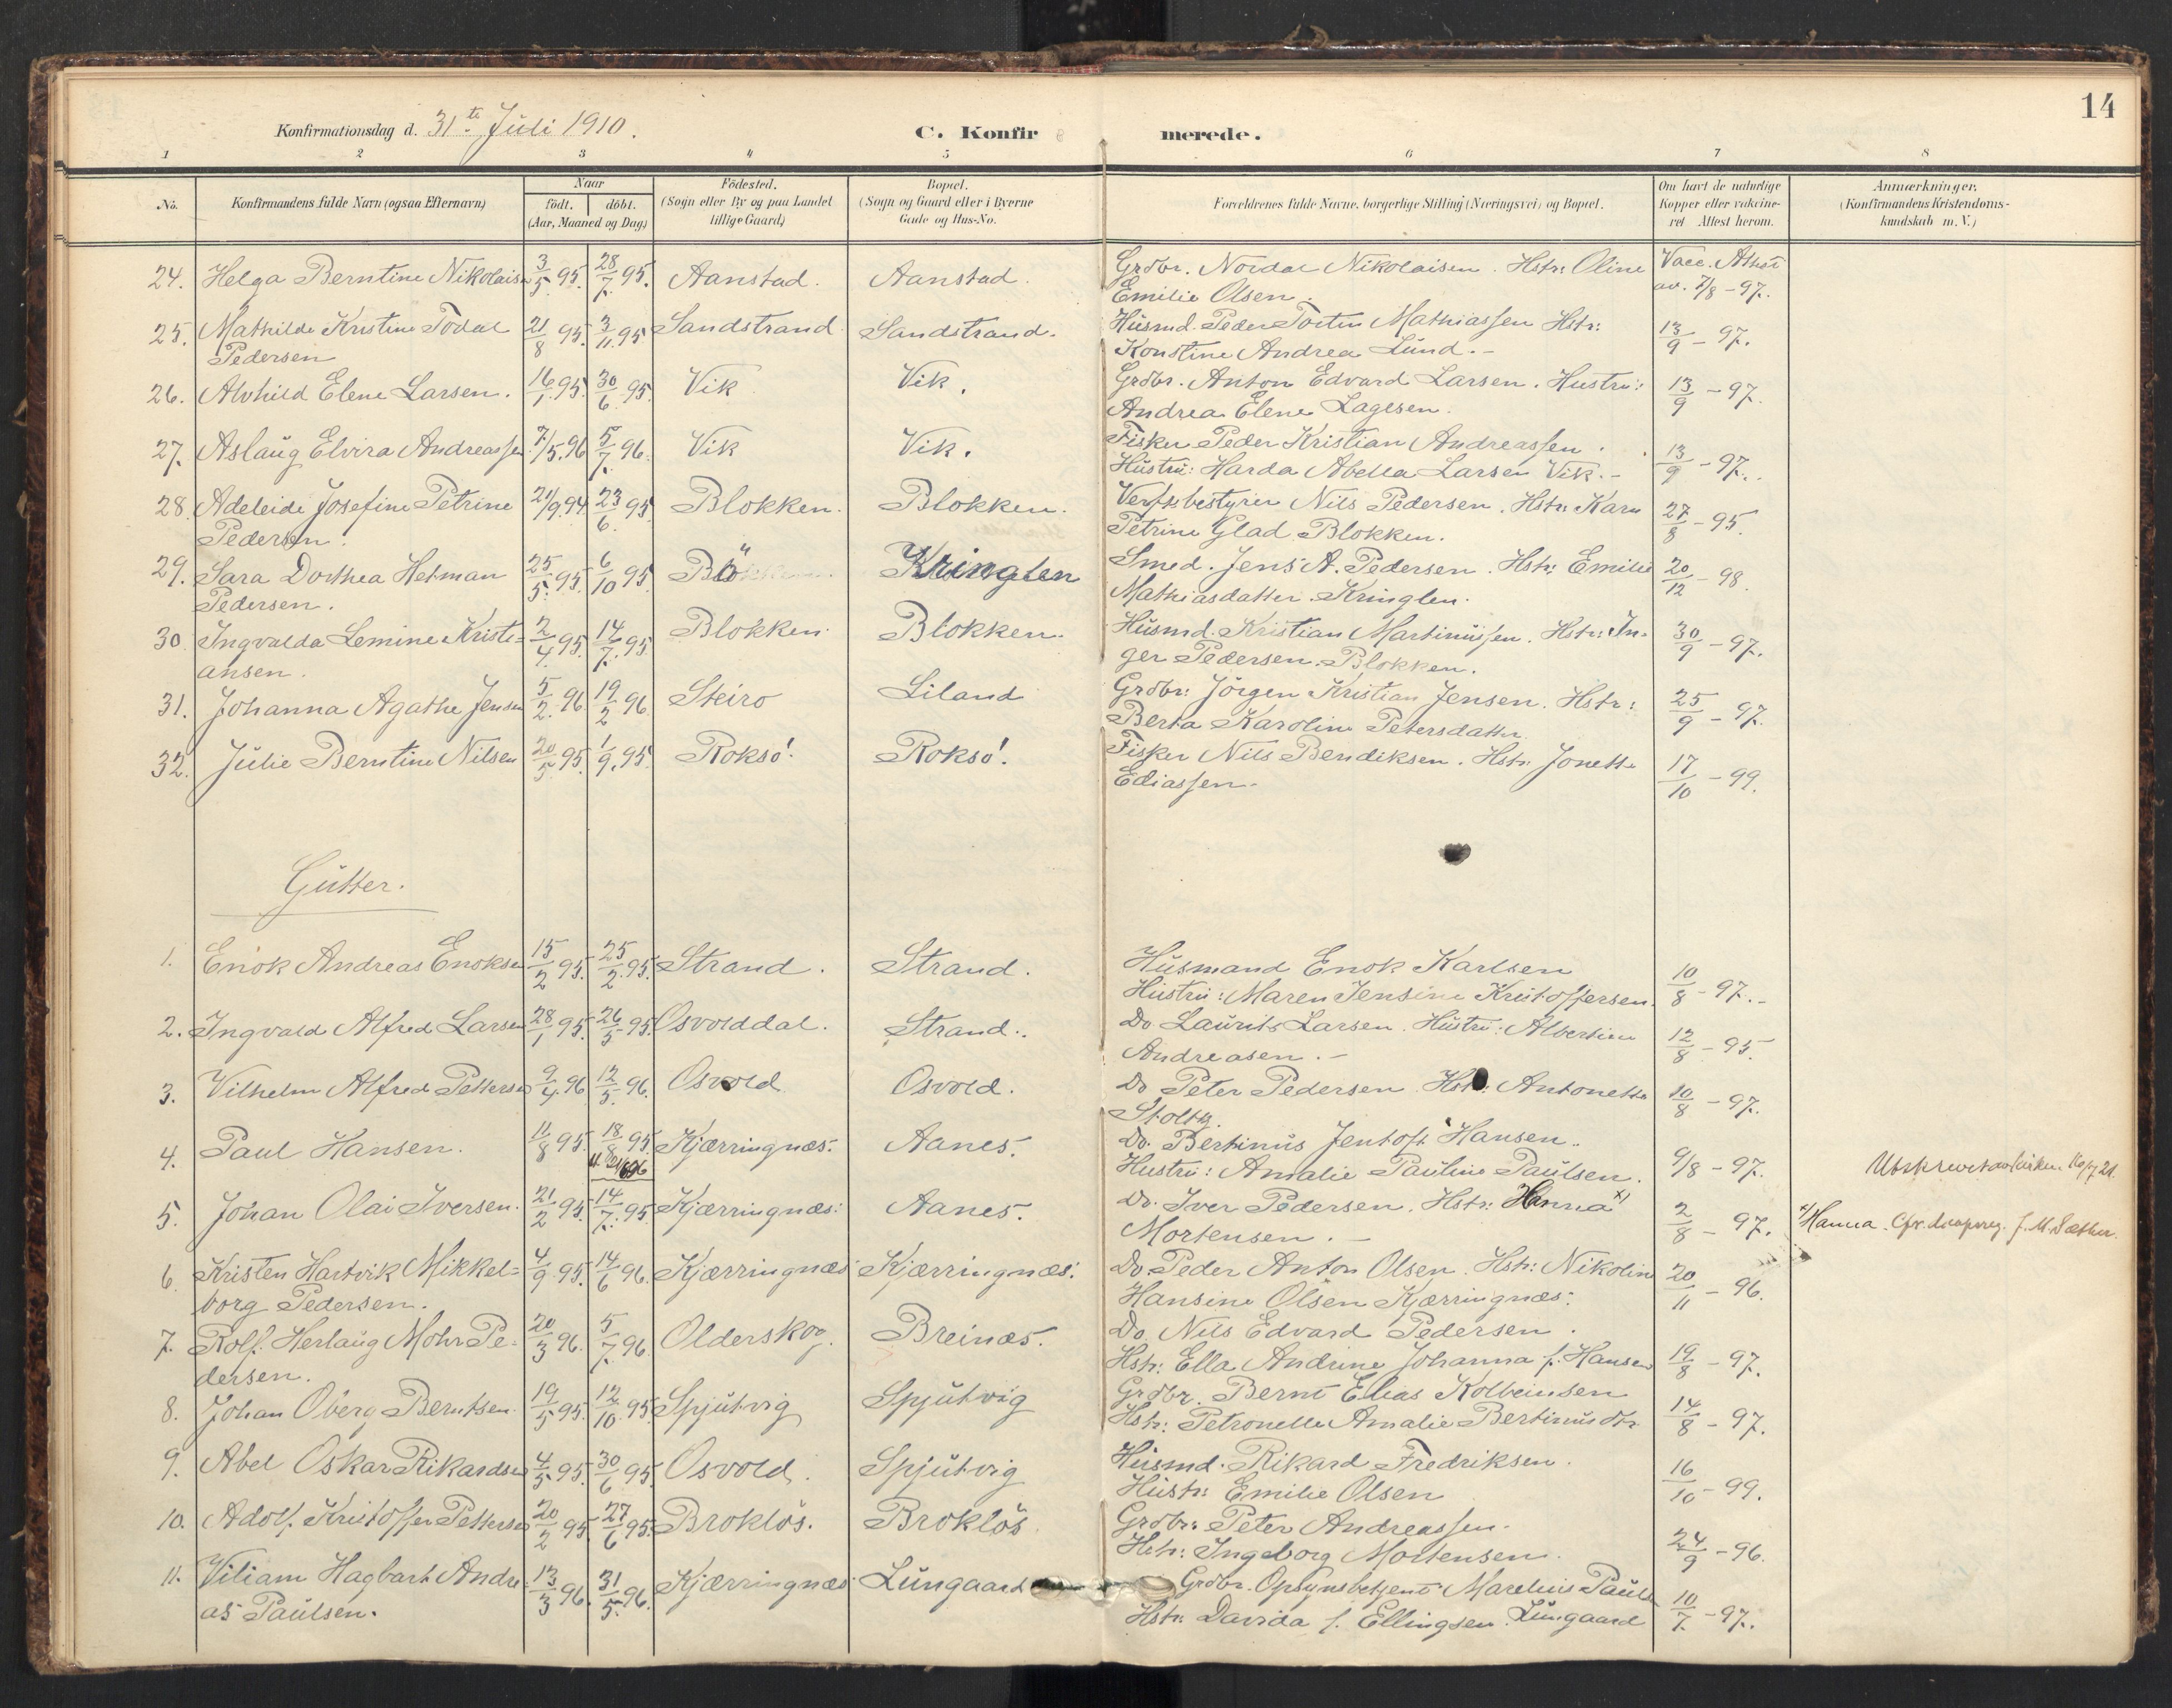 14
Konfirmationsdag d. 31te Juli 1910.
C. Konfir merede.
1 2 3 4 5 6 7 8
No. Konfirmandens fulde Navn (ogsaa Efternavn) Naar födt. döbt. (Aar, Maaned og Dag) Födested. (Sogn eller By og paa Landet tillige Gaard) Bopæl. (Sogn og Gaard eller i Byerne Gade og Hus-No. Forældrenes fulde Navne, borgerlige Stilling (Næringsvei) og Bopæl. Om havt de naturlige Kopper eller vaccineret Attest herom. Anmærkninger. (Konfirmandens Kristendomskundskab m. V.)
24. Helga Berntine Nikolaisen 3/5 95. 28/7 95. Aanstad. Aanstad. Grdbr. Nordal Nikolaisen. Hstr: Oline Vacc. Attest
Emilie Olsen. av. 7/8 - 97.
25. Mathilde Kristine Todal 21/8 95. 3/11 95 Sandstrand. Sandstrand. Husmd. Peder Tortin Mathiassen Hstr:
Pedersen Konstine Andrea Lund. - 13/9 - 97.
26. Alvhild Elene Larsen. 16/1 95. 30/6 95. Vik Vik. Grdbr. Anton Edvard Larsen. Hustru: 13/9 - 97.
Andrea Elene Lagesen.
27. Aslaug Elvira Andreassen 7/5. 96 5/7 96. Vik Vik. Fisker Peder Kristian Andreassen.
Hustru: Harda Abella Larsen Vik. - 13/9 - 97.
28. Adeleide Josefine Petrine 21/9 94 23/6 95 Blokken. Blokken. Verftsbestyrer Nils Pedersen. Hstr: Karn 27/8 - 95.
Pedersen. Petrine Glad Blokken.
29. Sara Dorthea Hetman 25/5 95. 6/10 95 Bö Kringlen Smed. Jens A. Pedersen. Hstr: Emilie 20/12 - 98.
Pedersen. Mathiasdatter. Kringlen.
30. Ingvalda Lemine Kristi= 2/4 95. 14/7 95 Blokken. Blokken. Husmd. Kristian Martinussen. Hstr: In- 30/9 - 97.
ansen. ger Pedersen. Blokken.
31. Johanna Agathe Jensen 5/2 96. 19/2 96. Steiro Liland Grdbr: Jörgen Kristian Jensen. Hstr: 25/9 - 97.
Berta Karoline Petersdatter
32. Julie Berntine Nilsen 20/5 95. 1/9. 95. Roksö. Roksö. Fisker Nils Bendiksen. Hstr. Jonette 17/10 - 99.
Ediassen.
Gutter.
1. Enok Andreas Enoksen 15/2 95. 25/2 95. Strand. Strand. Husmand Enok Karlsen
Hustru: Maren Jensine Kristoffersen. 10/8 - 97.-
2. Ingvald Alfred Larsen 28/1 95. 26/5 95. Osvolddal. Strand. Do Laurits Larsen. Hustru: Albertine 12/8 - 95.
Andreasen. -
3. Vilhelm Alfred Pettersen 9/4. 96 12/5 96. Osvold Osvold. Do Peter Pedersen. Hstr: Antonette 10/8 - 97.
Stoltz.
4. Paul Hansen. 11/8 95. 18/8 95. Kjærringnæs. Aanes. Do. Bertinus Jentoft Hansen.
Hustru: Amalie Pauline Paulsen. 9/8 - 97.
5. Johan Olai Iversen. 21/2 95. 14/7 95 Kjærringnæs. Aanes. Do. Iver Pedersen. Hstr: Hanna x) 2/8 - 97. x) Hanna.
Mortensen. -
6. Kristen Hartvik Mikkel= 4/9 95. 14/6 96. Kjærringnæs Kjærringnæs. Do Peder Anton Olsen. Hstr: Nikoline 20/11 - 96.
borg Pedersen. Hansine Olsen Kjærringnæs.
7. Rolf. Herlaug Mohr Pe- 20/3 96. 5/7 96. Olderskog. Breinæs. Do. Nils Edvard Pedersen.
dersen. Hstr: Ella Andrine Johanna f. Hansen 19/8 - 97.
8. Johan Oberg Berntsen. 19/5 95. 12/10 95 Spjutvig Spjutvig Grdbr. Bernt Elias Kolbeinsen
Hstr: Petronella Amalie Bertinusdtr 14/8 - 97.
9. Abel Oskar Rikardsen 4/5 95. 30/6 95. Osvold. Spjutvig Husmd. Rikard Fredriksen.
Hustr: Emilie Olsen 16/10 - 99.
10. Adolf. Kristoffer Pettersen 20/2 95. 27/6 95. Broklös. Broklös Grdbr: Peter Andreassen.
Hstr: Ingeborg Mortensen. 24/9 - 96.
11. Viliam Hagbart Andre 13/3 96. 31/5 96. Kjærringnæs Lungaard Grdbr. Opsynsbetjent Marelius Paulsen
as Paulsen. Hstr: Davida f. Ellingsen. Lungaard 10/7 - 97.